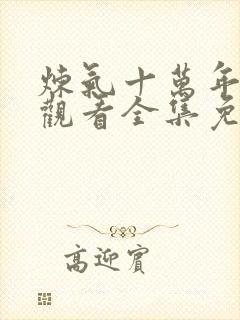 煉氣十萬年
觀看全集免
高迎賓